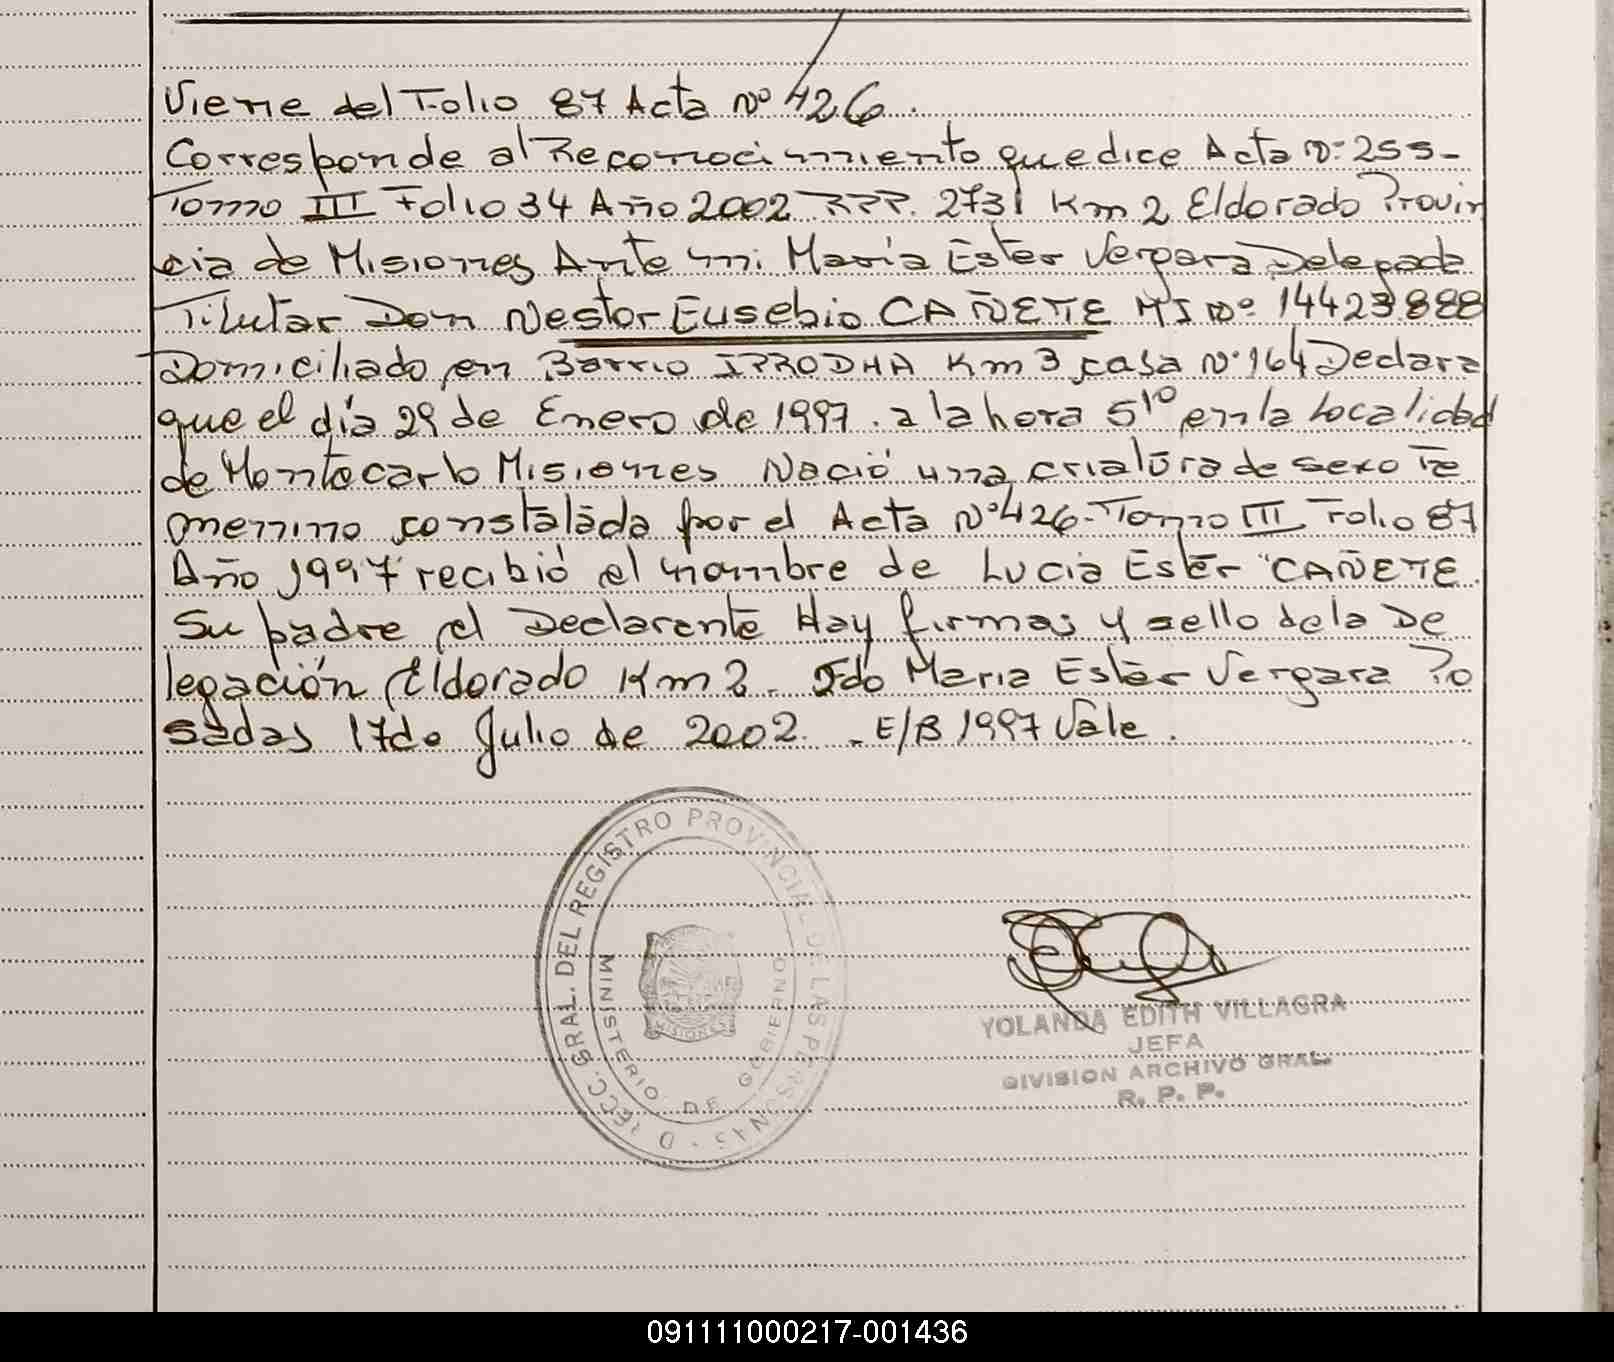 Viene del Folio 87 Acta Nº 426.
Corresponde al Reconocimiento que dice Acta Nº 255-
Tomo III Folio 34 Año 2002 RPP. 2731 Km 2 Eldorado Provin
cia de Misiones Ante mi Maria Ester Vergara Delegada
Titutar Don Nestor Eusebio CAÑETE MI Nº 14423888
Domiciliado en Barrio IPRODHA Km 3 casa Nº 164 Declara
que el día 29 de Enero de 1997. a la hora 5¹⁰ en la Localidad
de Montecarlo Misiones Nació una criatura de sexo Fe
menino constatada por el Acta Nº 426- Tomo III Folio 87
Año 1997 recibió el nombre de Lucia Ester "CAÑETE
Su padre el Declarante Hay firmas y sello de la De
legación Eldorado Km 2. Fdo Maria Ester Vergara Po
sadas 17 de Julio de 2002. - E/B 1997 Vale.
DIRECC. GRAL. DEL REGISTRO PROVINCIAL DE LAS PERSONAS -
MINISTERIO DE GOBIERNO
MISIONES
YOLANDA EDITH VILLAGRA
JEFA
DIVISION ARCHIVO GRAL.
R. P. P.
091111000217-001436